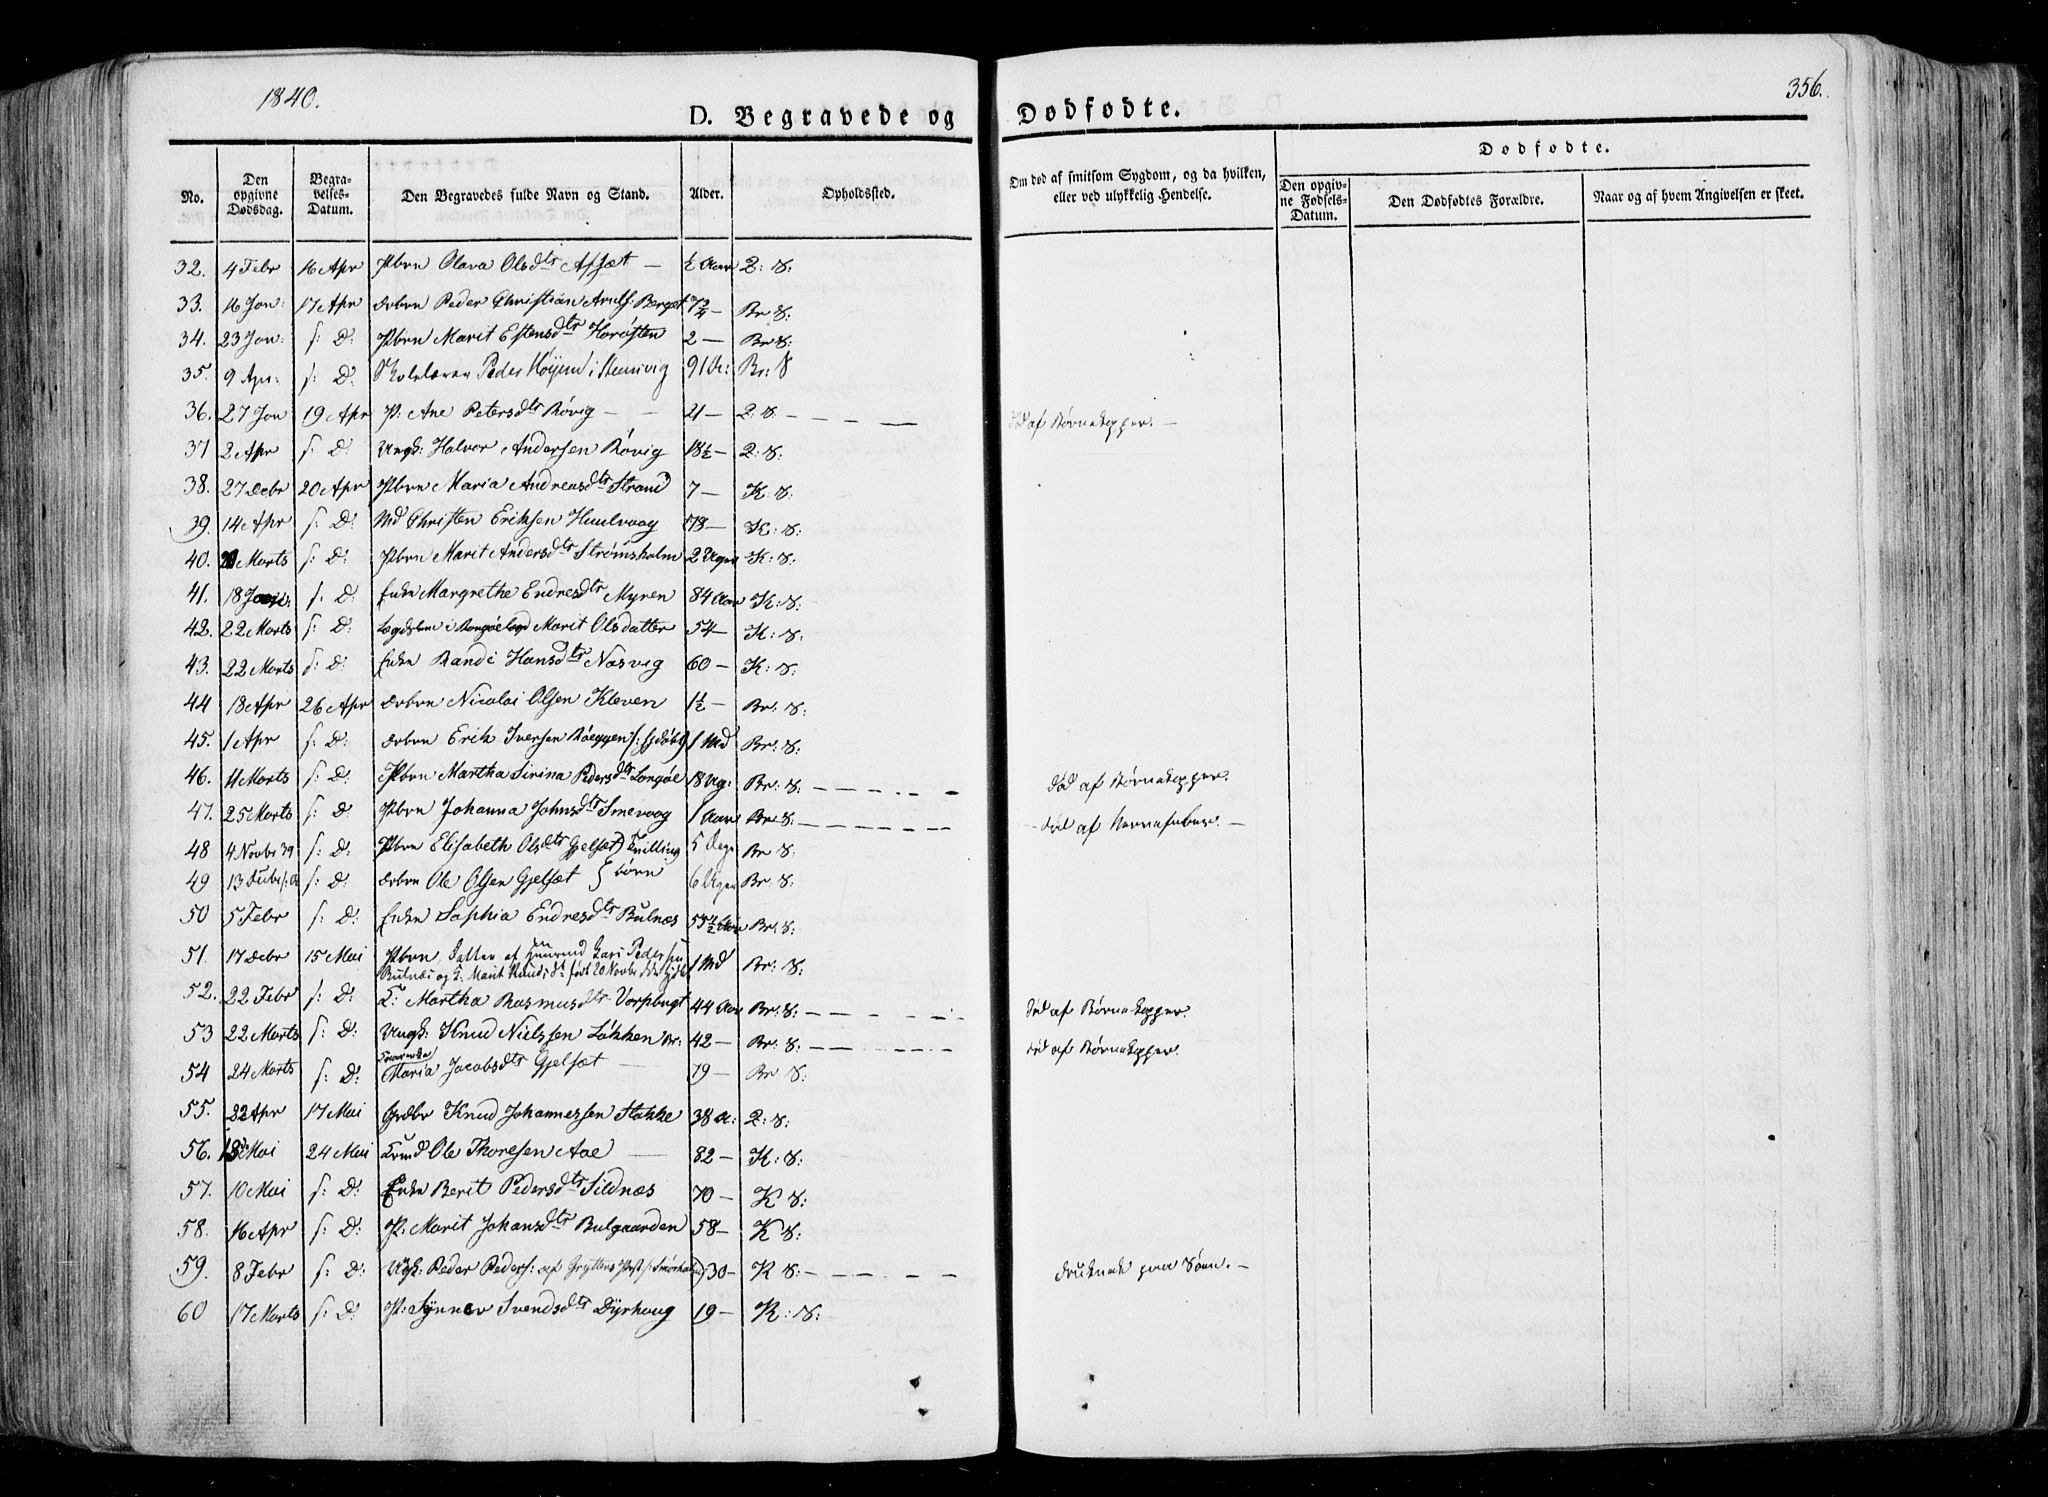 1840.
356.
D. Begravede og Dødfødte.
No. Den opgivne Dødsdag. Begravelses-Datum. Den Begravedes fulde Navn og Stand. Alder. Opholdssted. Om død af smitsom Sygdom, og da hvilken, eller ved ulykkelig Hendelse. Dødfødte. Den opgivne Fødsels-Datum. Den Dødfødtes Forældre. Naar og af hvem Angivelsen er skeet.
32. 4 Febr 16 Apr Pbrn Olava Olsdtr Apsæt — ½ Aar Q: S:
33. 16 Jan: 17 Apr Drbrn Peder Christian Arnts: Berget 7¾ — Br S:
34. 23 Jan: s: D: Pbrn Marit Estensdtr Harøsten 2 — Br S:
35. 9 Apr: s: D: Skolelærer Peder Høyem i Stemvig 91 A: Br: S
36. 27 Jan 19 Apr P: Ane Petersdtr Røvig — — 21 — Q: S. — død af Børnekopper. —
37 2 Apr s: D: Ungk: Halvor Andersen Røvig 18½ — Q: S:
38. 27 Debr 20 Apr Pbrn Maria Andreasdtr Strand 7 — K: S:
39. 14 Apr s: D: Md Christen Eriksen Huulvaag 78 — K: S:
40. Marts s: D: Pbrn Marit Andersdtr Strømsholm 2 Uger K: S:
41. 18 s: D: Enke Margrethe Endresdtr Myren 84 Aar K: S:
42. 22 Marts s: D: Lægdslem i Marit Olsdatter 54 — K: S:
43. 22 Marts s: D: Enke Randi Hansdtr Nasvig 60 — K: S:
44 18 Apr 26 Apr Drbrn Nicolai Olsen Kleven 1½ — Br: S:
45. 1 Apr s: D: Drbrn Erik Iversen Røeggen 1 Md Br: S:
46. 11 Marts s: D: Pbrn Martha Sirina Pedersdtr Langøe 18 Ug: Br: S: død af Børnekopper.
47. 25 Marts s: D: Pbrn Johanna Johnsdtr Smevaag 1 Aar Br S: — død af Nervefeber. —
48 4 Novbr 39 s: D: Pbrn Elisabeth Olsdtr Gjelsæt } Tvilling 5 Dage Br S:
49 13 s: D: Drbrn Ole Olsen Gjelsæt } børn 6 Uger Br: S:
50 5 Febr s: D: Enke Saphia Endresdtr Bulnæs 55½ Aar Br: S:
51. 17 Debr 15 Mai Pbrn Datter af Lars Pedersen
Bulnæs og Marit Knudsdt født 20 Novbr 1 Md Br: S:
52. 22 Febr s: D: T: Martha Rasmusdtr Vorpbugt 44 Aar Br: S: død af Børnekopper.
53 22 Marts s: D: Ungk: Knud Nielssen Løkken 42 — Br: S: død af Børnekopper.
54 24 Marts s: D: Maria Jacobsdtr Gjelsæt — 19 — Br S:
55. 22 Apr 17 Mai Grdbr Knud Johannessen Stakke 38 A: Q: S:
56. 13 Mai 24 Mai Ole Thoresen Aae — 82 — K: S:
57. 10 Mai s: D: Enke Berit Pedersdtr Sildnæs 70 — K S:
58. 16 Apr s: D: P: Marit Johansdtr Bulgaarden 58 — K S:
59. 8 Febr s: D: Ungk: Peder Peders: af Gryttens Præst 30 — K S: druknede paa Søen. —
60 17 Marts s: D: P: Synnev Svendsdtr Dyrhoug 19 — K: S: